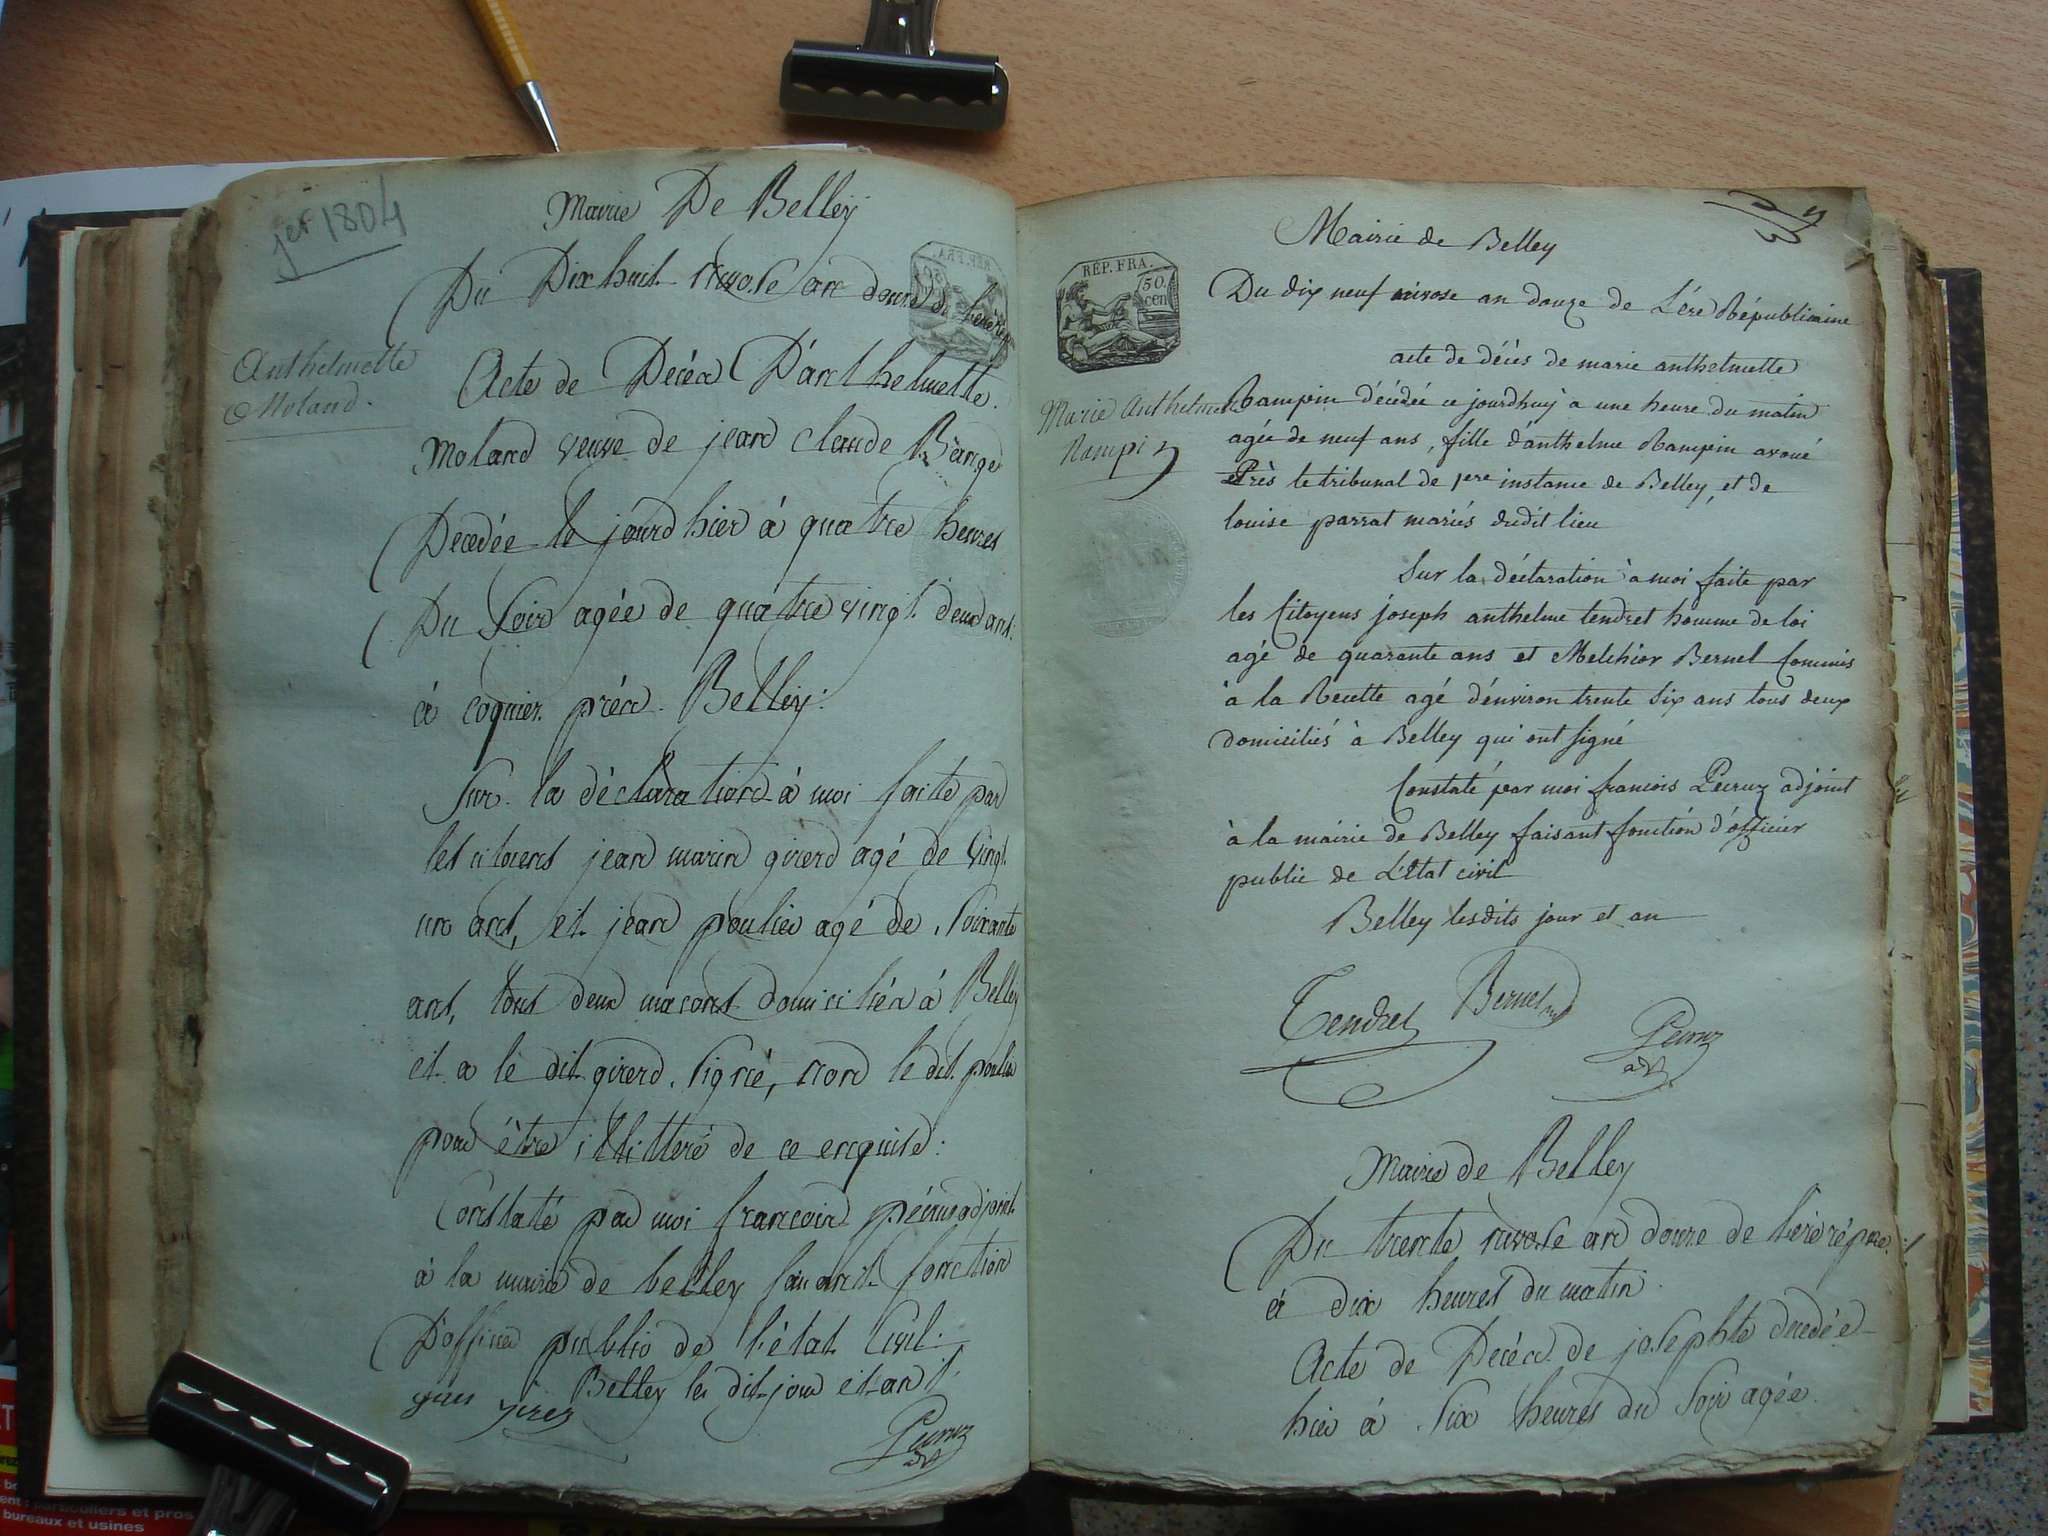 jer 1804
Mairie De Belley
Du Dix huit nivose an douze de l'ere rep
Anthelmette
Moland.
Acte de Décès D'anthelmette
Moland veuve de jean claude
Decedée le jourd hier à quatre heures
Du Soir agée de quatre vingt deux ans
à coquier près Belley:
Sur la déclaration à moi faite par
les citoiens jean marin girerd agé de vingt
un ans, et jean poulier agé de Soixante
ans, tous deux macons domiciliés à Belley
et a le dit girerd Signé, non le dit poulier
pour être illitteré de ce enquised:
Constaté par moi francois pécruz adjoint
à la mairie de belley faisant fonction
D'officier public de l'état Civil.
Belley les dit jour et an
Pecruz
adj.
REP. FRA.
50.
cen
Mairie de Belley
Du dix neuf nivose an douze de L'ére Républicaine
Marie Anthelmette
Rampin
acte de décès de marie anthelmette
Rampin décédée ce jourdhuy à une heure du matin
agée de neuf ans, fille d'anthelme Rampin avoué
Près le tribunal de 1ere instance de Belley, et de
louise parrat mariés dudit lieu
Sur la déclaration à moi faite par
les Citoyens joseph anthelme tendret homme de loi
agé de quarante ans et Melchior Bernel Commis
à la Recette agé d'environ trente Six ans tous deux
domiciliés à Belley qui ont signé
Constaté par moi francois Pecruz adjoint
à la mairie de Belley faisant fonction d'officier
public de L'Etat civil
Belley lesdits jour et an
Tendret
Bernel
Pecruz
adj.
Mairie de Belley
Du trente nivose an douze de l'ere répne:
à dix heures du matin.
Acte de Décès de josephte decedée
hier à Six heures du Soir agée
ent: particuliers et pros
bureaux et usines